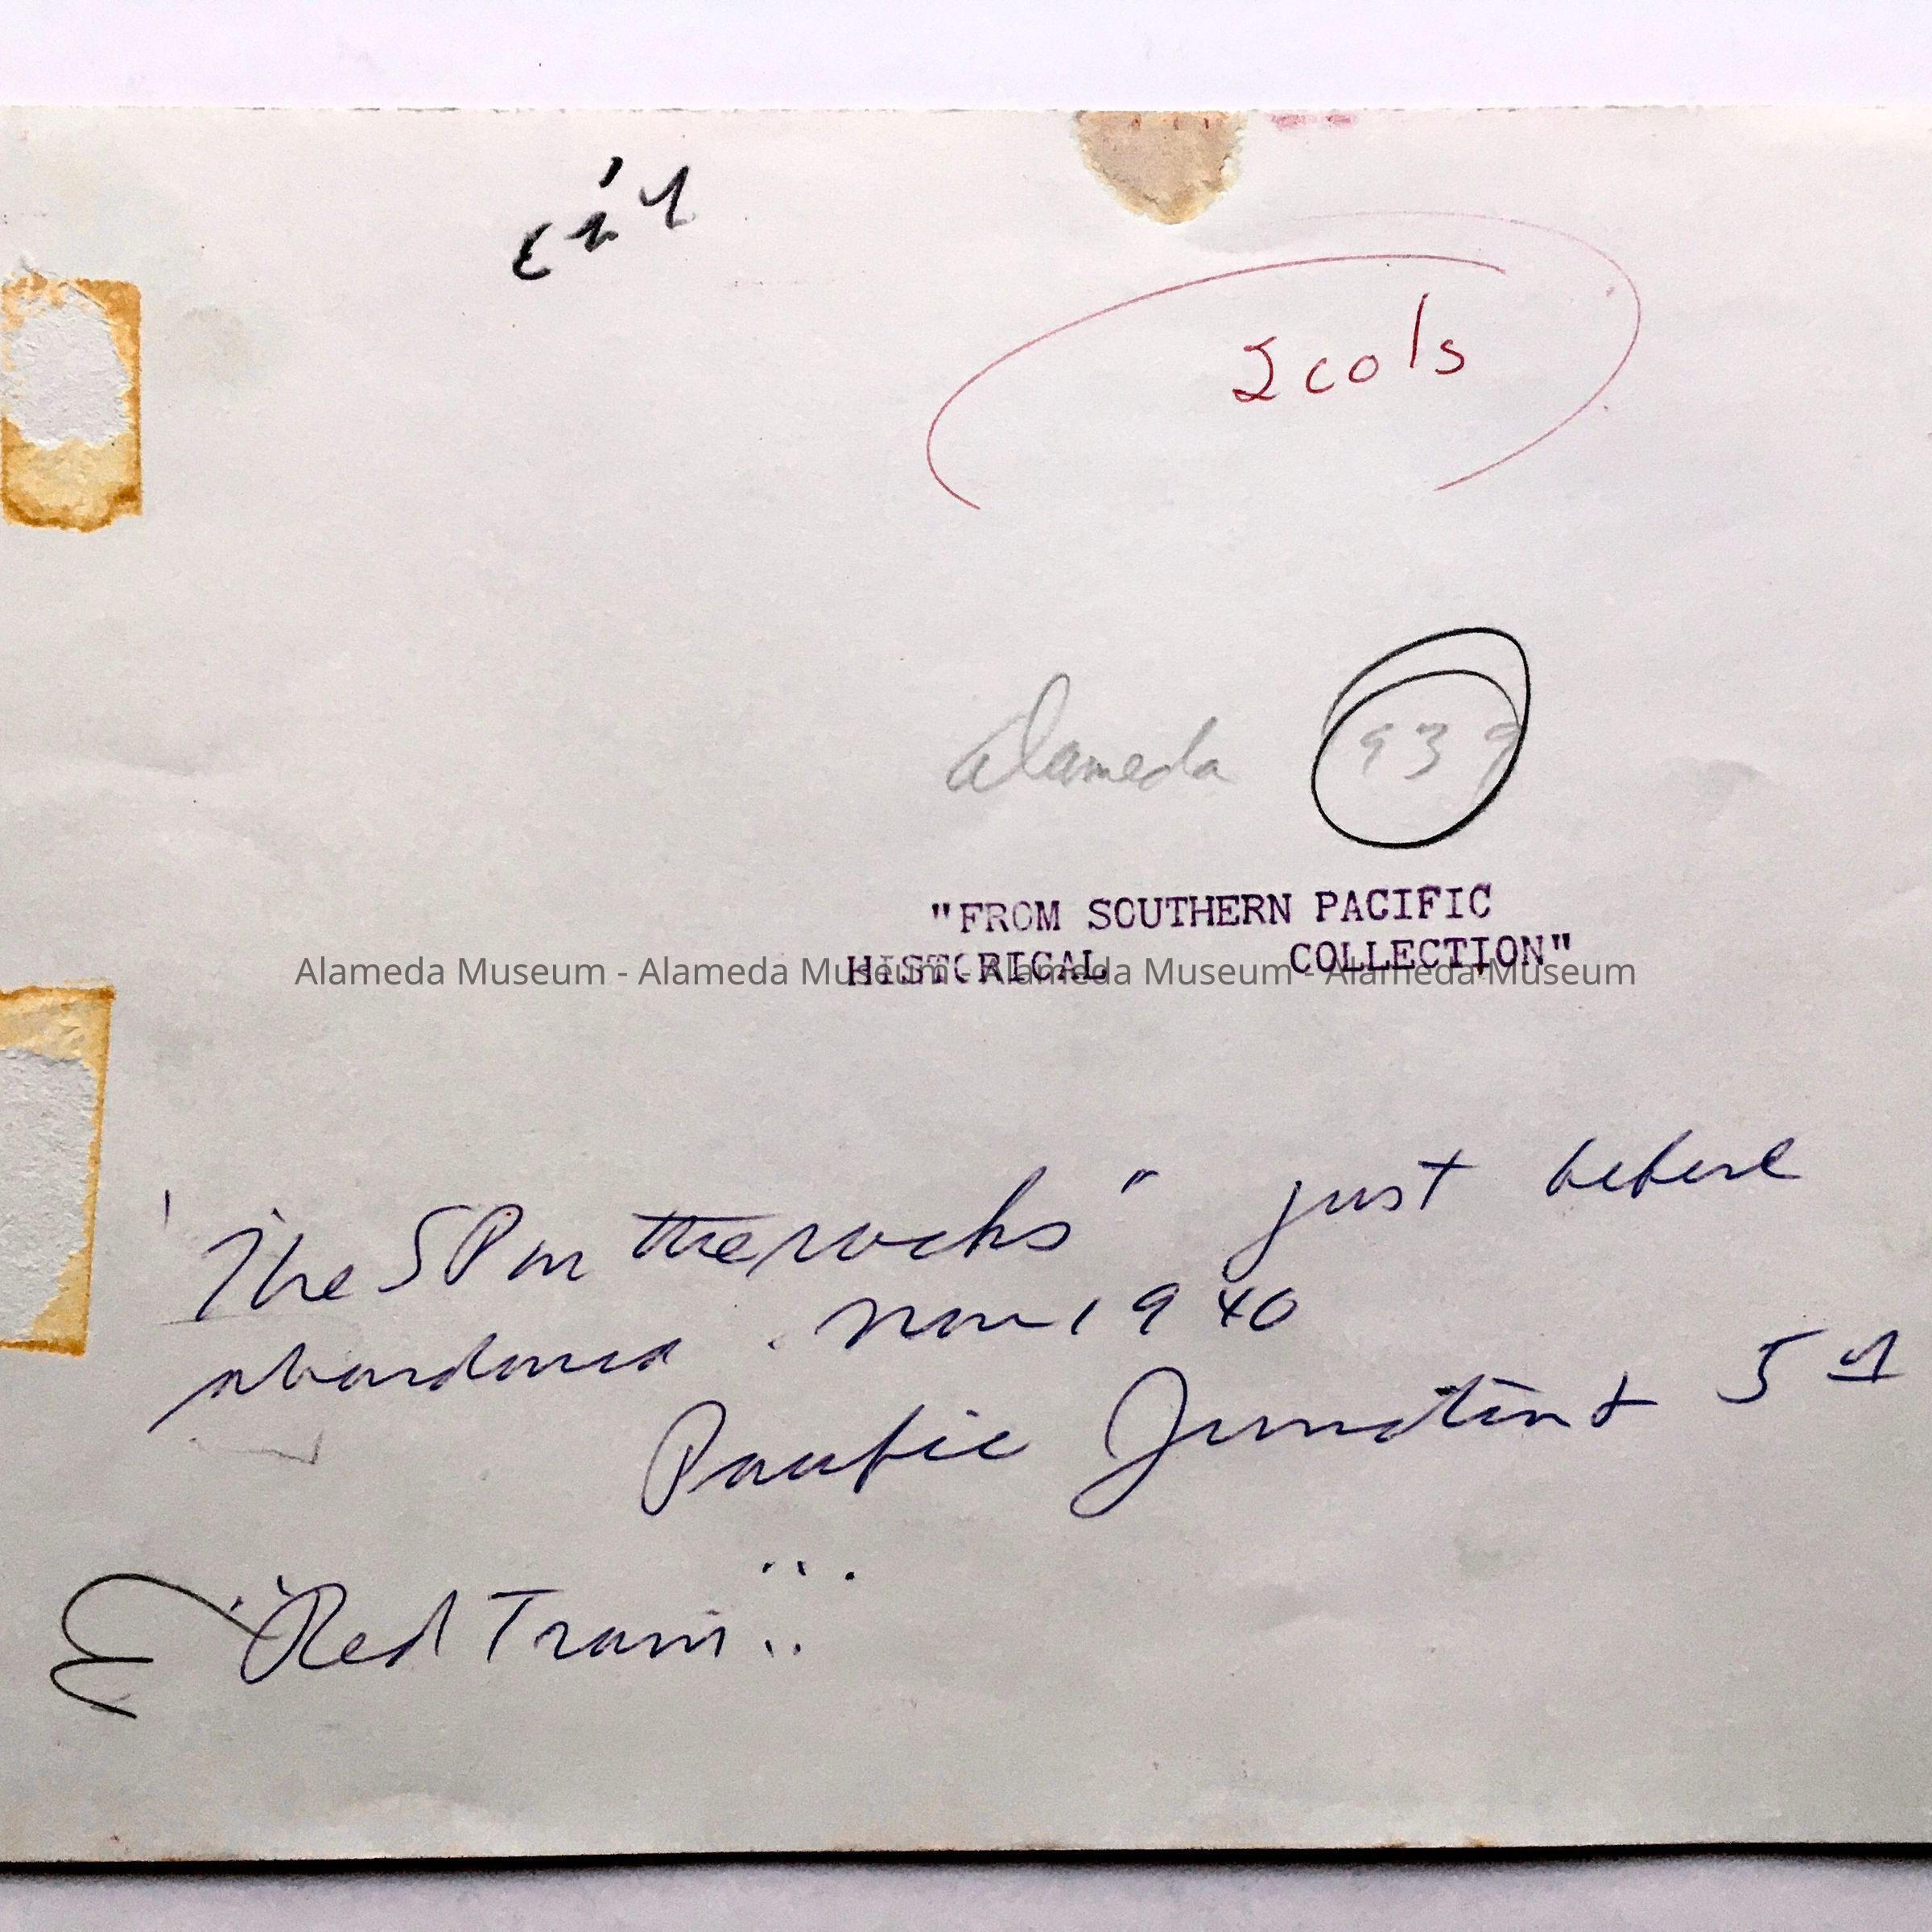 2 cols
Alameda 939
"FROM SOUTHERN PACIFIC
HISTORICAL COLLECTION"
Alameda Museum - Alameda Museum - Alameda Museum - Alameda Museum
"The SP on the rocks" just before
abandoned. Nov 1940
Pacific Junction & 5th
"Red Train"